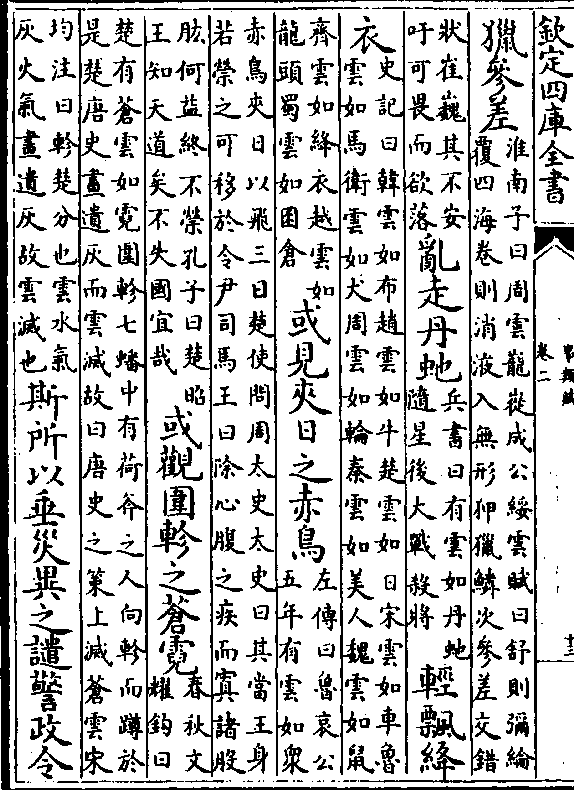 欽定四庫全書
事類賦
卷二
十三
獵參差
淮南子曰周雲蘢蓯成公綏雲賦曰舒則彌綸
覆四海卷則消液入無形狎獵鱗次參差交錯
狀崔巍其不安
吁可畏而欲落
亂走丹虵
兵書曰有雲如丹虵
隨星後大戰殺將
輕飄絳
衣
史記曰韓雲如布趙雲如牛楚雲如日宋雲如車魯
雲如馬衛雲如犬周雲如輪秦雲如美人魏雲如鼠
齊雲如絳衣越雲如
龍頭蜀雲如囷倉
或見夾日之赤鳥
左傳曰魯哀公
五年有雲如衆
赤鳥夾日以飛三日楚使問周太史太史曰其當王身
若禜之可移於令尹司馬王曰除心腹之疾而寘諸股
肱何益終不禜孔子曰楚昭
王知天道矣不失國宜哉
或觀圍軫之蒼霓
春秋文
耀鈎曰
楚有蒼雲如霓圍軫七蟠中有荷斧之人向軫而蹲於
是楚唐史畫遺灰而雲滅故曰唐史之策上滅蒼雲宋
均注曰軫楚分也雲水氣
灰火氣畫遺灰故雲滅也
斯所以垂災異之譴警政令